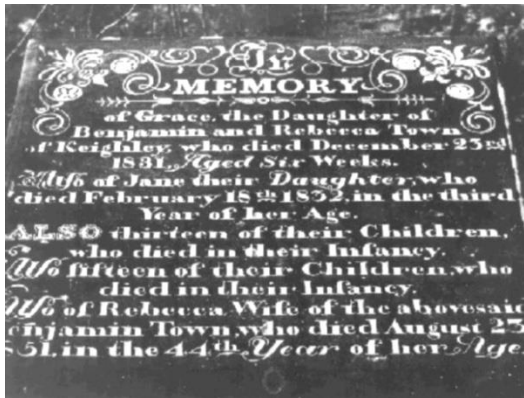 In
MEMORY
of Grace, the Daughter of
Benjamin and Rebecca Town
of Keighley, who died December 23rd
1831, Aged Six Weeks.
Also of Jane their Daughter, who
died February 18th 1832, in the third
Year of her Age.
ALSO thirteen of their Children,
who died in their Infancy.
Also fifteen of their Children, who
died in their Infancy.
Also of Rebecca Wife of the abovesaid
enjamin Town, who died August 23
51, in the 44th Year of her Age